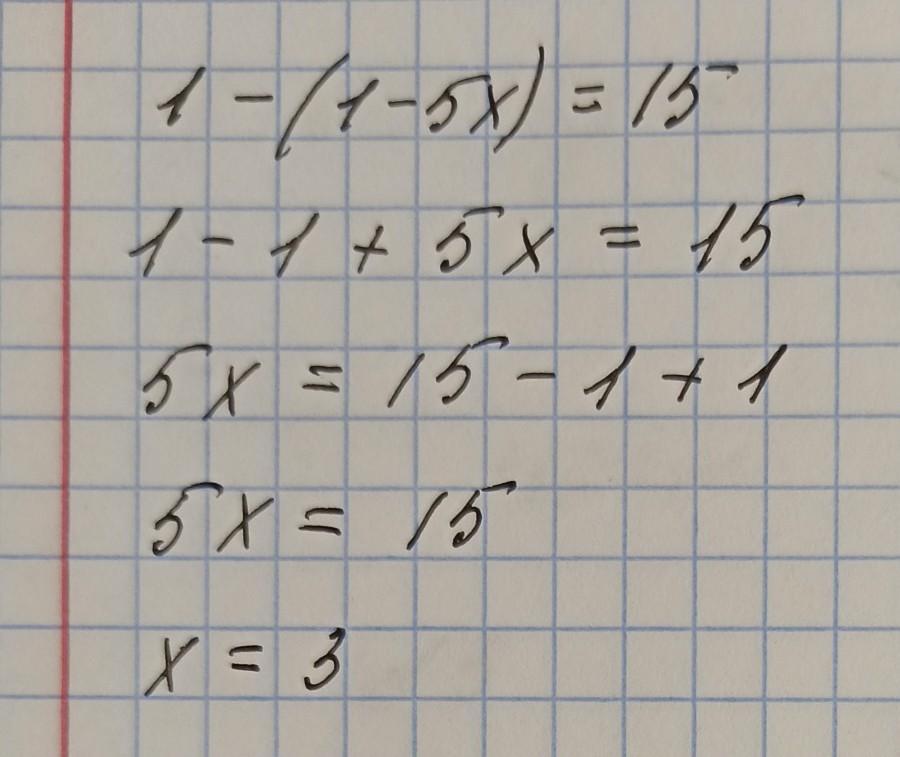 1 - (1 - 5x) = 15
1 - 1 + 5x = 15
5x = 15 - 1 + 1
5x = 15
x = 3